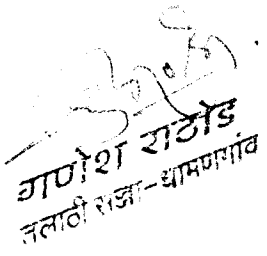 गणेश राठोड
तलाठी सज्जा-धामणगांव